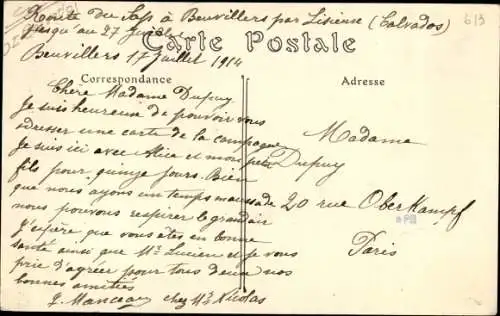 Route du Sap à Beuvillers par Lisieux (Calvados)
jusqu'au 27 Juillet
Carte Postale
613
Beuvillers 17 Juillet 1914
Correspondance
Adresse
Chère Madame Dupuy
Je suis heureuse de pouvoir vous
adresser une carte de la campagne
Je suis ici avec Alice et mon petit
fils pour quinze jours. Bien
que nous ayons un temps maussade
nous pouvons respirer le grand air
J'espère que vous êtes en bonne
santé ainsi que Mr Lucien et je vous
prie d'agréer pour tous deux nos
bonnes amitiés
J. Manceau chez Mr Nicolas
Madame
Dupuy
20 rue Oberkampf
Paris